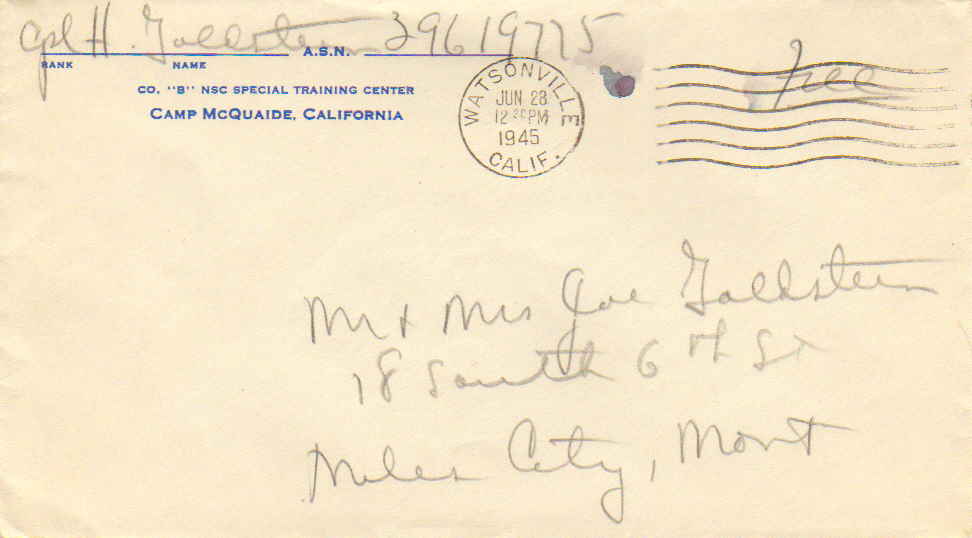 Cpl H. Goldstein A.S.N. 39619775
RANK NAME
CO. "B" NSC SPECIAL TRAINING CENTER
CAMP MCQUAIDE, CALIFORNIA
WATSONVILLE
JUN 28
12 PM
1945
CALIF.
Free
Mr & Mrs Joe Goldstein
18 South 6th St
Miles City, Mont